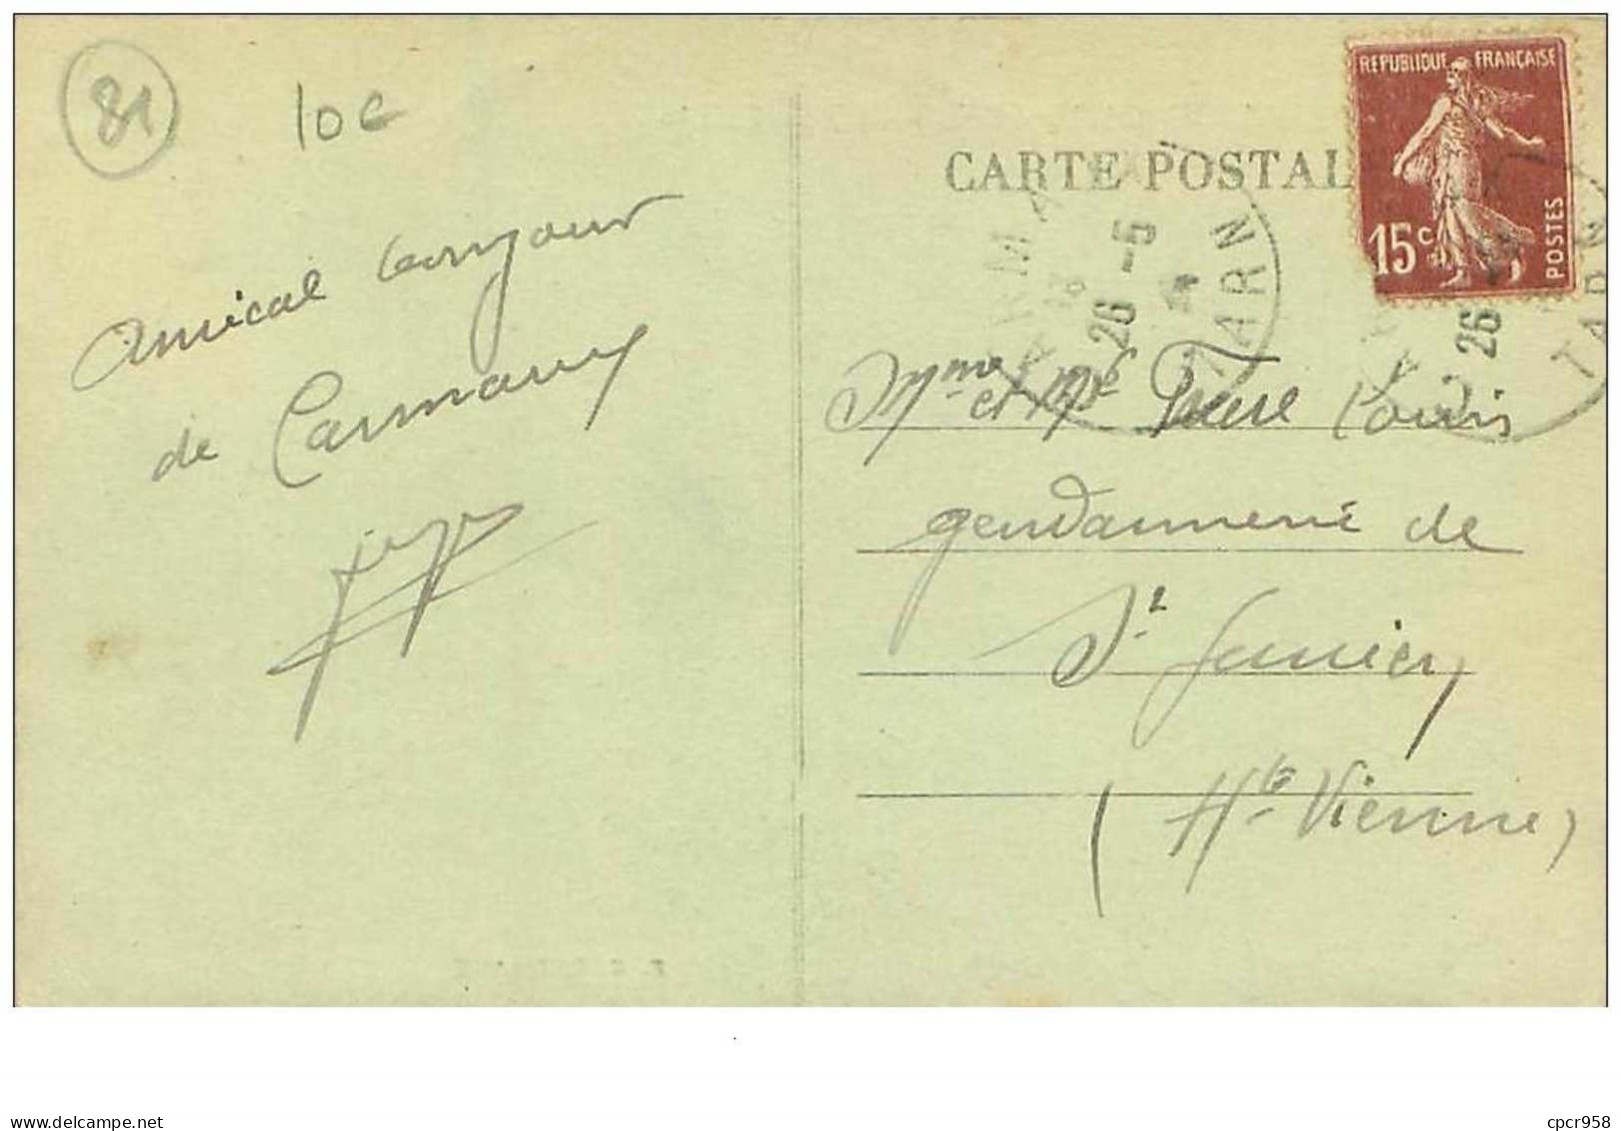 81
10 e
Amical bonjour
de Carmaux
CARTE POSTAL
REPUBLIQUE FRANÇAISE
15c
POSTES
26 -5
TARN
26
TARN
Mme et Mr Faure Louis
gendarmerie de
St Junien
(Hte Vienne)
www.delcampe.net
cpcr958